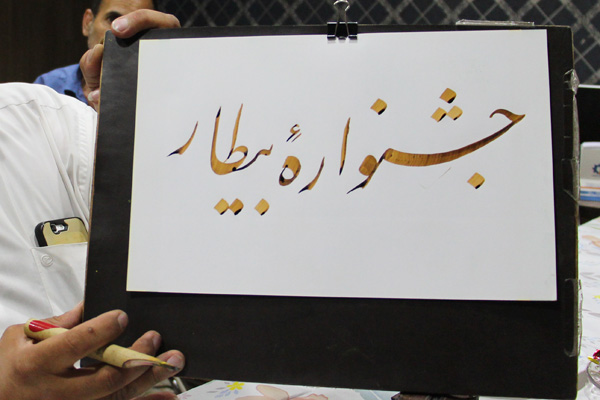 جشنوارهٔ بیطار